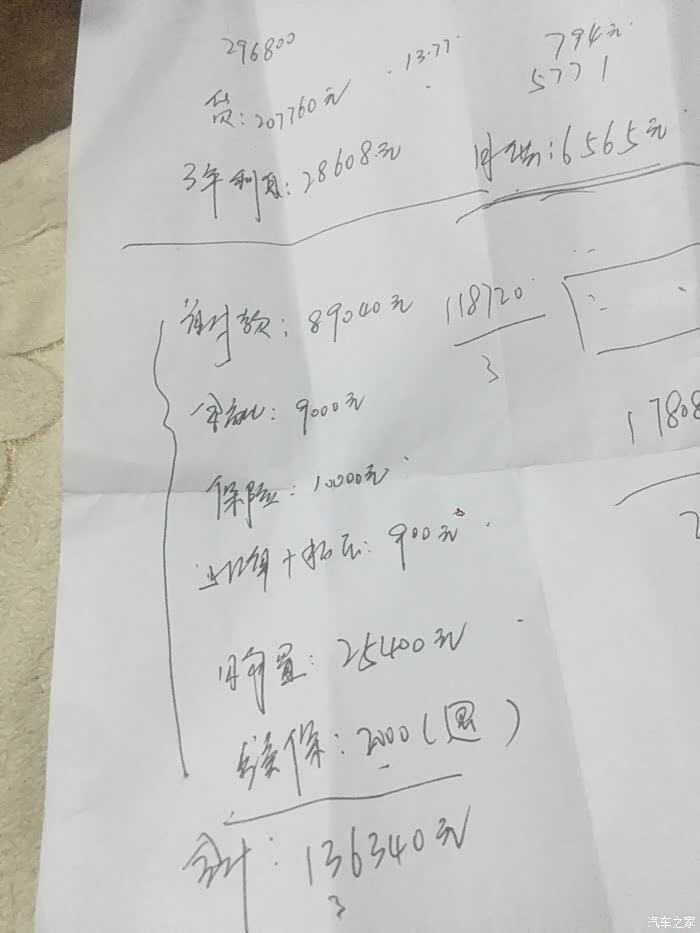 296800
贷:207760元 13.77 794元
5771
3年利息:28608元 月供:6565元
首付款:89040元 118720
3
金融:9000元
17808
保险:10000元
上牌+抵压:900元
购置:25400元
续保:2000(退)
合计:136340元
3
汽车之家